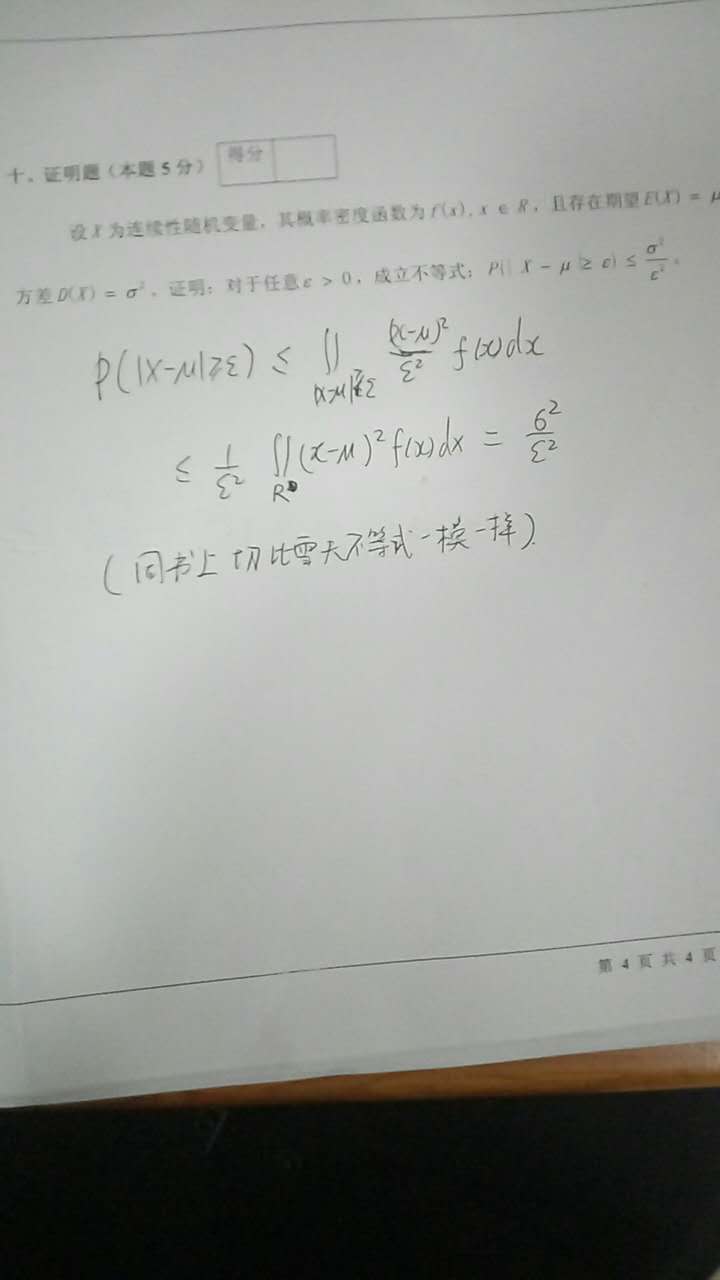 十、证明题（本题 5 分） 得分
设 X 为连续性随机变量，其概率密度函数为 f(x), x ∈ R，且存在期望 E(X) = μ
方差 D(X) = σ²，证明：对于任意 ε > 0，成立不等式：P(|X − μ| ≥ ε) ≤ σ²/ε²。
P(|X−μ|⩾ε) ≤ ∬ |x−μ|⩾ε (x−μ)²/ε² f(x)dx
≤ 1/ε² ∬ R (x−μ)² f(x)dx = 6²/ε²
(同书上切比雪夫不等式一模一样).
第 4 页 共 4 页